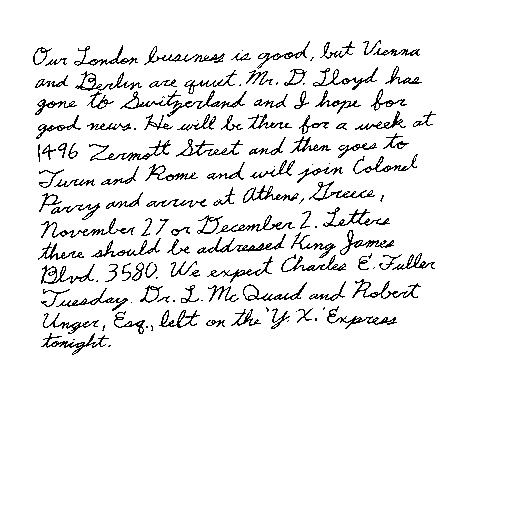 Our London business is good, but Vienna
and Berlin are quiet. Mr. D. Lloyd has
gone to Switzerland and I hope for
good news. He will be there for a week at
1496 Zermott Street and then goes to
Turin and Rome and will join Colonel
Parry and arrive at Athens, Greece,
November 27 or December 2. Letters
there should be addressed King James
Blvd. 3580. We expect Charles E. Fuller
Tuesday. Dr. L. McQuaid and Robert
Unger, Esq., left on the 'Y. X.' Express
tonight.